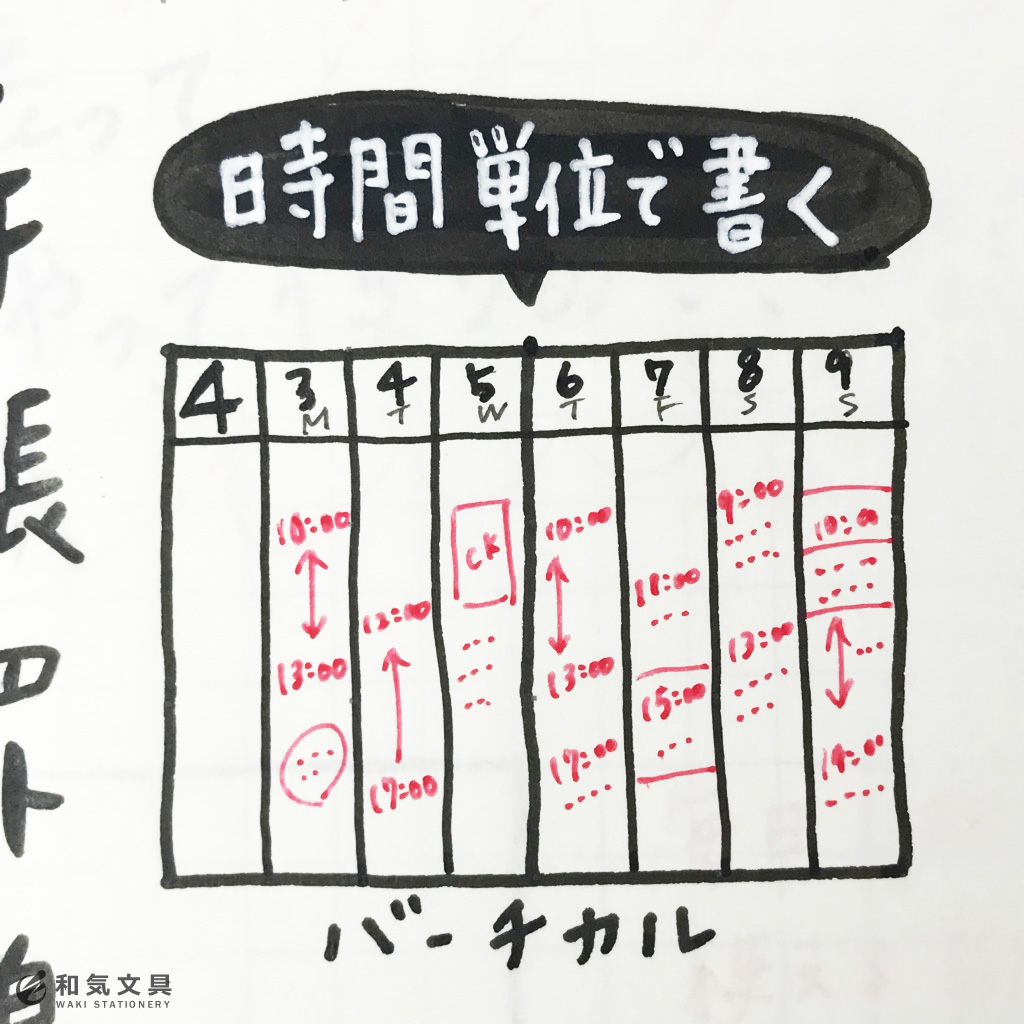 時間単位で書く
4 3 4 5 6 7 8 9
M T W T F S S
10:00 10:00 9:00 10:00
CK
12:00 11:00
13:00 13:00 15:00 13:00
17:00 17:00
バーチカル
長
和気文具
WAKI STATIONERY